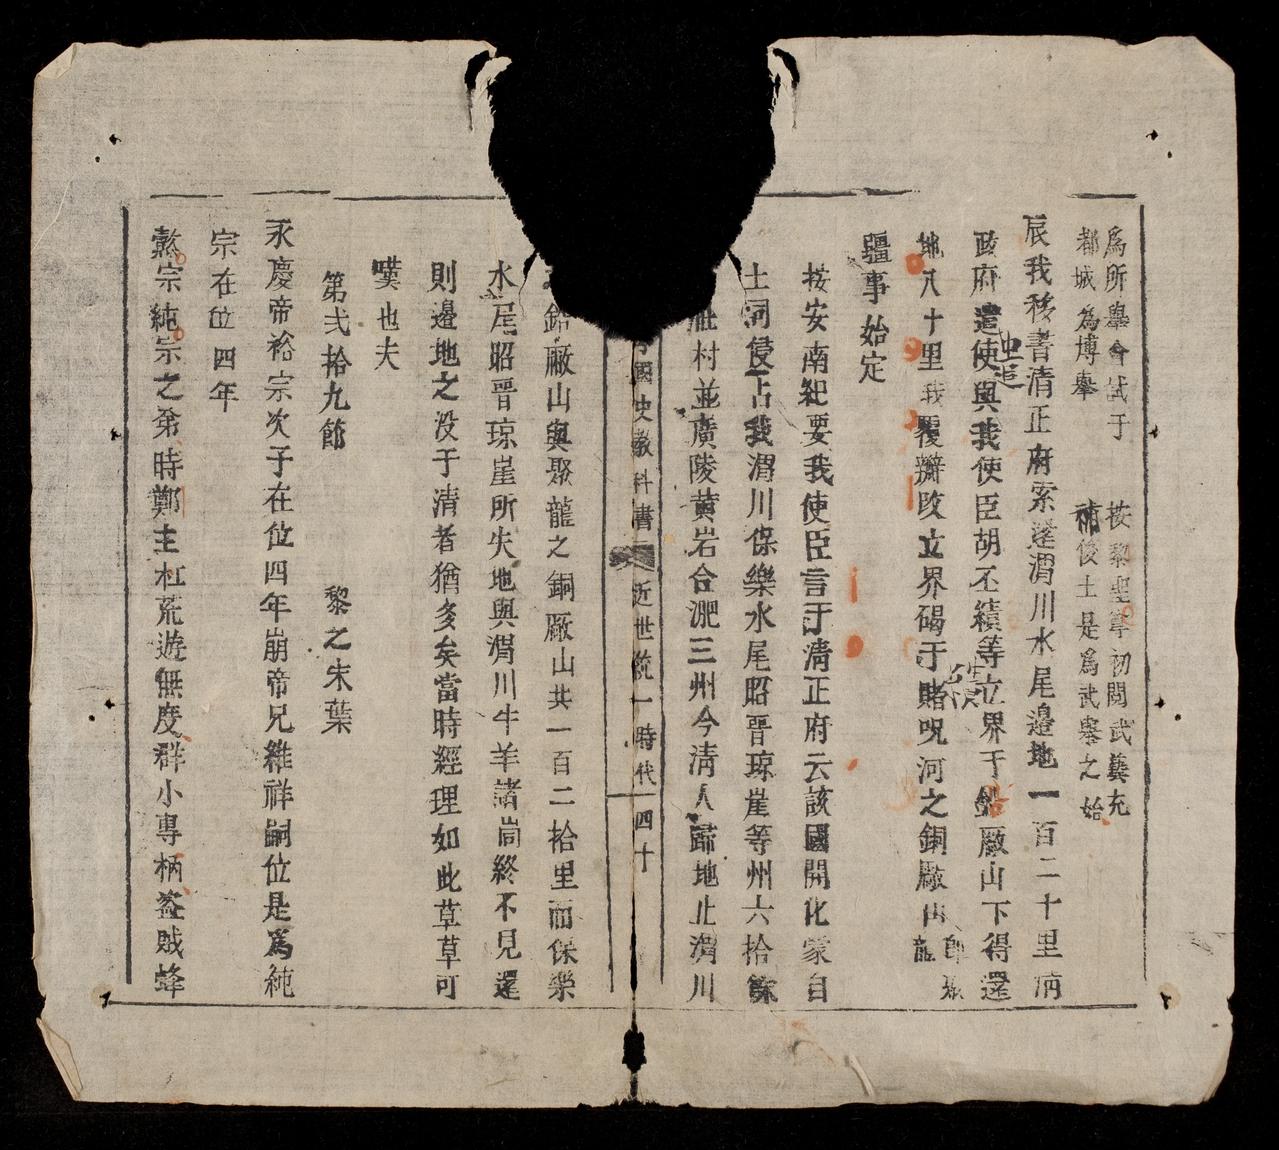 為所舉會試于
都城為博舉
按黎聖尊初閱武藝充
補後士是爲武舉之始
辰我移書清正府索還渭川水尾邊地一百二十里
政府遣使與我使臣胡丕績等立界于鉛廠山下得還
地八十里我覆辯改立界碣于賭呪河之銅廠山
疆事始定
按安南紀要我使臣言于清正府云該國開化蒙自
土司侵占我渭川保樂水尾昭晋琼崖等州六拾餘
村並廣陵黄岩合淝三州今清人歸地止渭川
國史教科書
近世統一時代
四十
鉛廠山與聚龍之銅廠山共一百二拾里而保樂
水尾昭晋琼崖所失地與渭川牛羊諸峝終不見還
則邊地之没于清者猶多矣當時經理如此草草可
嘆也夫
第弍拾九節
黎之末葉
永慶帝裕宗次子在位四年崩帝兄維祥嗣位是爲純
宗在位四年
懿宗純宗之弟時鄭主杠荒遊無度群小專柄盗賊蜂